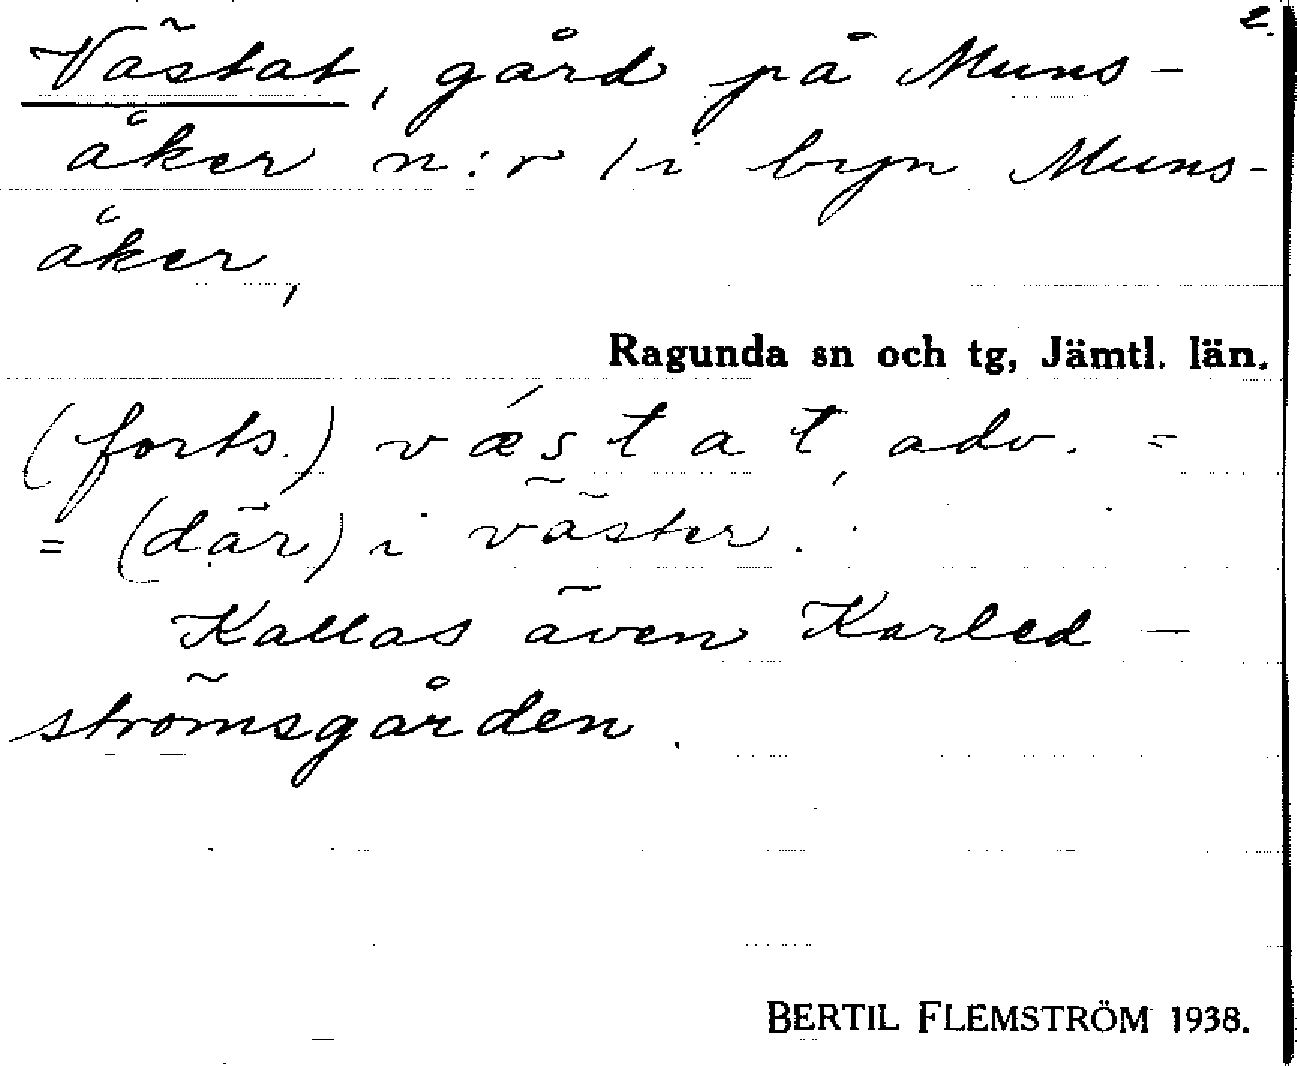 2.
Västat, gård på Muns-
åker n:r 1 i byn Muns-
åker,
Ragunda sn och tg, Jämtl. län.
(forts.) vǽstat, adv. =
= (där) i väster.
Kallas även Karled-
strömsgården.
BERTIL FLEMSTRÖM 1938.